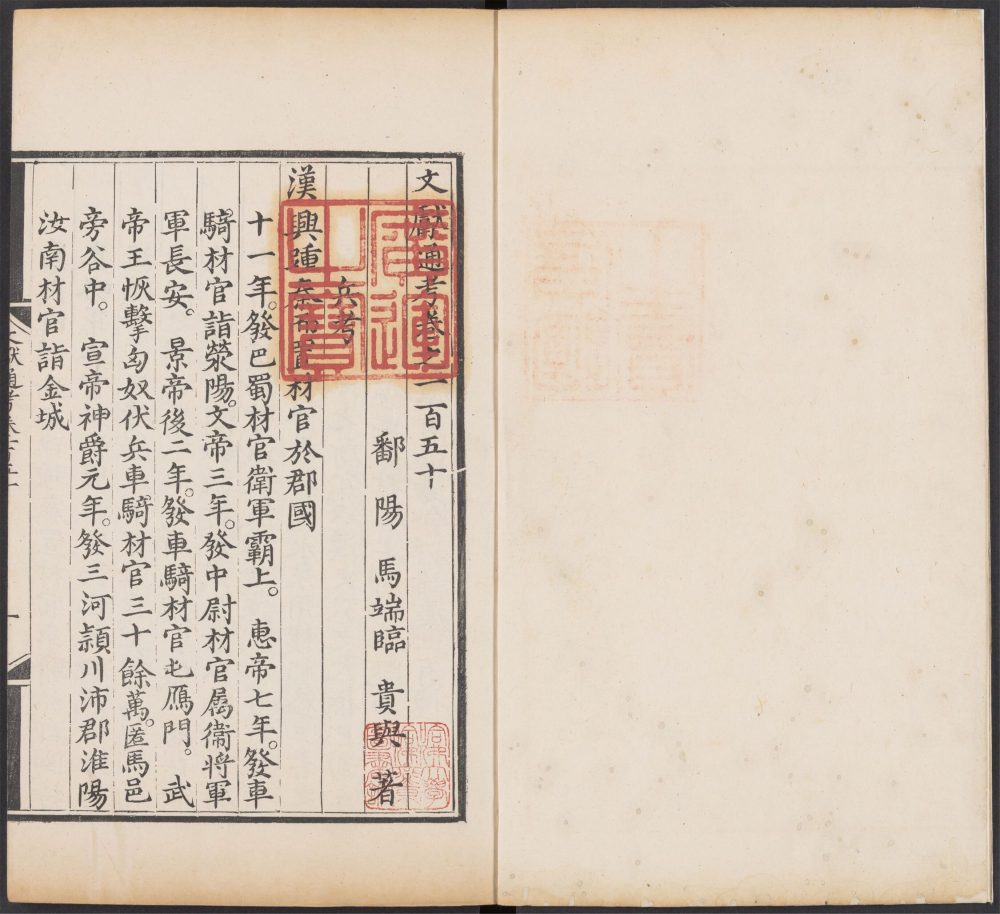 文獻通考卷之一百五十
鄱陽馬端臨貴與著
兵考
漢興踵秦而置材官於郡國
十一年。發巴蜀材官衛軍霸上。惠帝七年。發車
騎材官詣滎陽。文帝三年。發中尉材官屬衞將軍
軍長安。景帝後二年。發車騎材官屯鴈門。武
帝王恢擊匈奴伏兵車騎材官三十餘萬。匿馬邑
旁谷中。宣帝神爵元年。發三河潁川沛郡淮陽
汝南材官詣金城
文獻通考卷
一